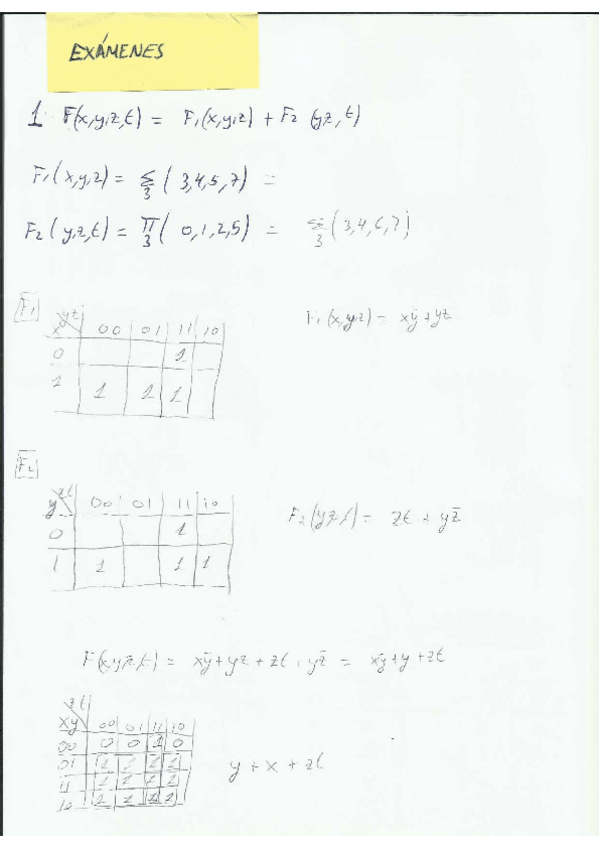 EXÁMENES
1 F(x,y,z,t) = F₁(x,y,z) + F₂ (yz,t)
F₁(x,y,z) = Σ₃ ( 3,4,5,7) =
F₂(y,z,t) = π₃ ( 0,1,2,5) = Σ₃ (3,4,6,7)
F₁
x yz 00 01 11 10
0 1
1 1 1 1
F₁(x,y,z) = xȳ + yz
F₂
y zt 00 01 11 10
0 1
1 1 1 1
F₂(y,z,t) = zt + yz̄
F(x,y,z,t) = xȳ + yz + zt + yz̄ = xȳ + y + zt
zt
xy 00 01 11 10
00 0 0 1 0
01 1 1 1 1
11 1 1 1 1
10 1 1 1 1
y + x + zt